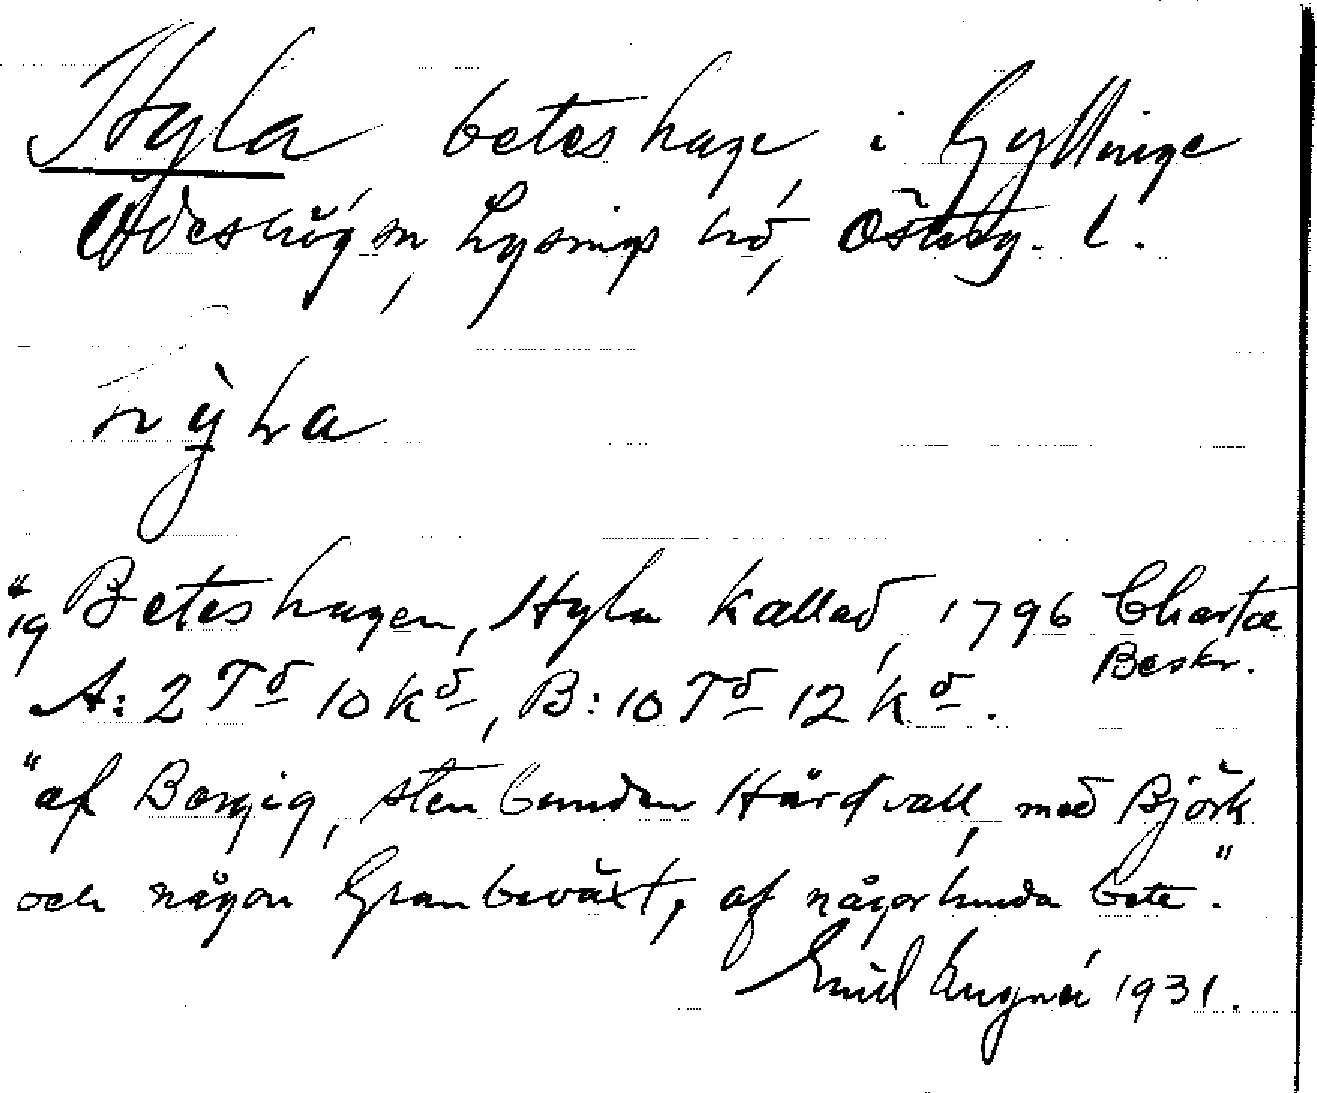 Hyla beteshage i Gyllinge
Ödeshög sn, Lysings hd, Östg. l.
hỳla
"19 Beteshagen, Hyla kallad, 1796 Charta Beskr.
A: 2 Td 10 kd, B: 10 Td 12 kd.
"af Bergig, stenbunden Hårdvall, med Björk
och någon Granbeväxt, af någorlunda bete."
Emil 1931.